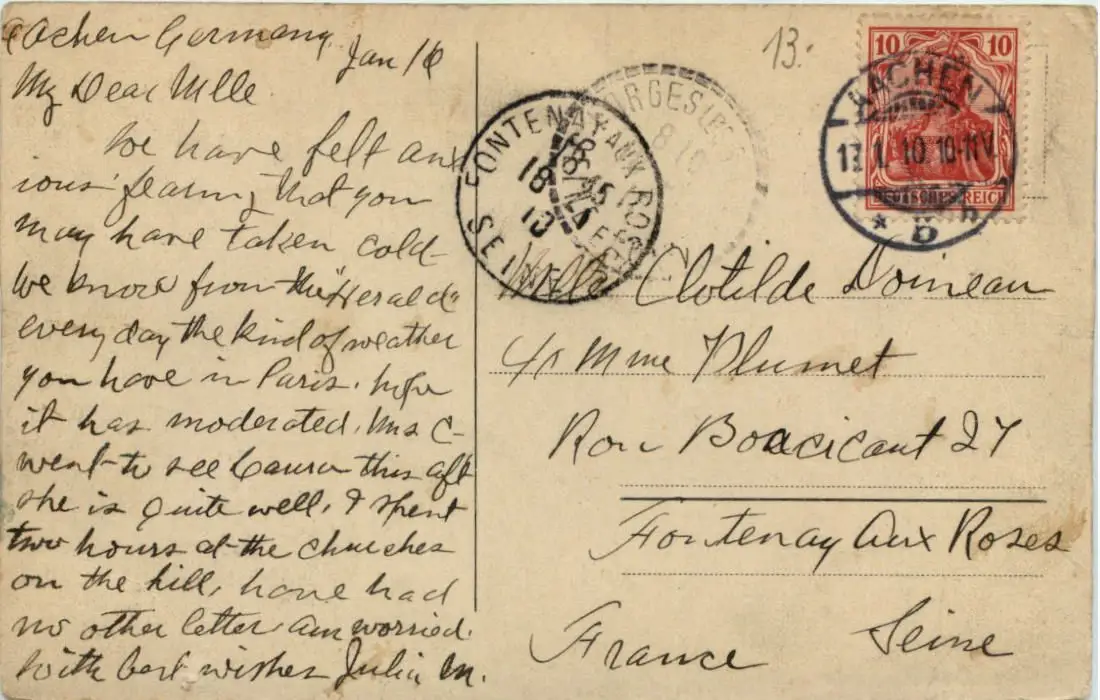 Aachen Germany
Jan 16
My Dear Mlle
We have felt anx
ious fearing that you
may have taken cold
We know from the "Herald"
every day the kind of weather
you have in Paris. hope
it has moderated. Mrs C-
went to see Laura this aft
she is quite well. I spent
two hours at the churches
on the hill, have had
no other letter. Am worried.
With best wishes Julia M.
13.
10 10
DEUTSCHES REICH
AACHEN
17.1.10 10-11V
* b
FONTENAY AUX ROSES
18
10
SEINE
Mlle Clotilde Doineau
c/o Mme Plumet
Rou Boucicaut 27
Fontenay Aux Roses
Seine
France